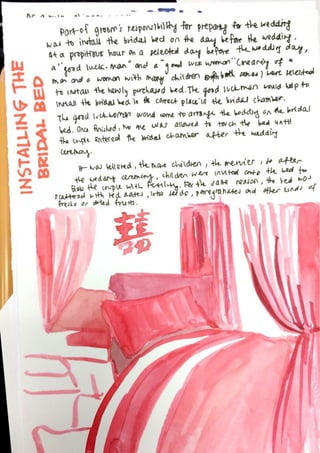 INSTALLING THE
BRIDAL BED
Part of groom's responsibility for preparing for the wedding
was to install the bridal bed on the day before the wedding.
At a propitious hour on a selected day before the wedding day,
a "good luck man" and a "good luck woman" (meaning of a
man and a woman with many children of both sexes) were selected
to install the newly purchased bed. The good luck man would help to
install the bridal bed in the correct place in the bridal chamber.
The good luck woman would come to arrange the bedding on the bridal
bed. Once finished, no one was allowed to touch the bed until
the couple entered the bridal chamber after the wedding
ceremony.
It was believed, the more children, the merrier, so after
the wedding ceremony, children were invited onto the bed to
bless the couple with fertility. For the same reason, the bed was
scattered with red dates, lotus seeds, pomegranates and other kinds of
fresh or dried fruits.
囍